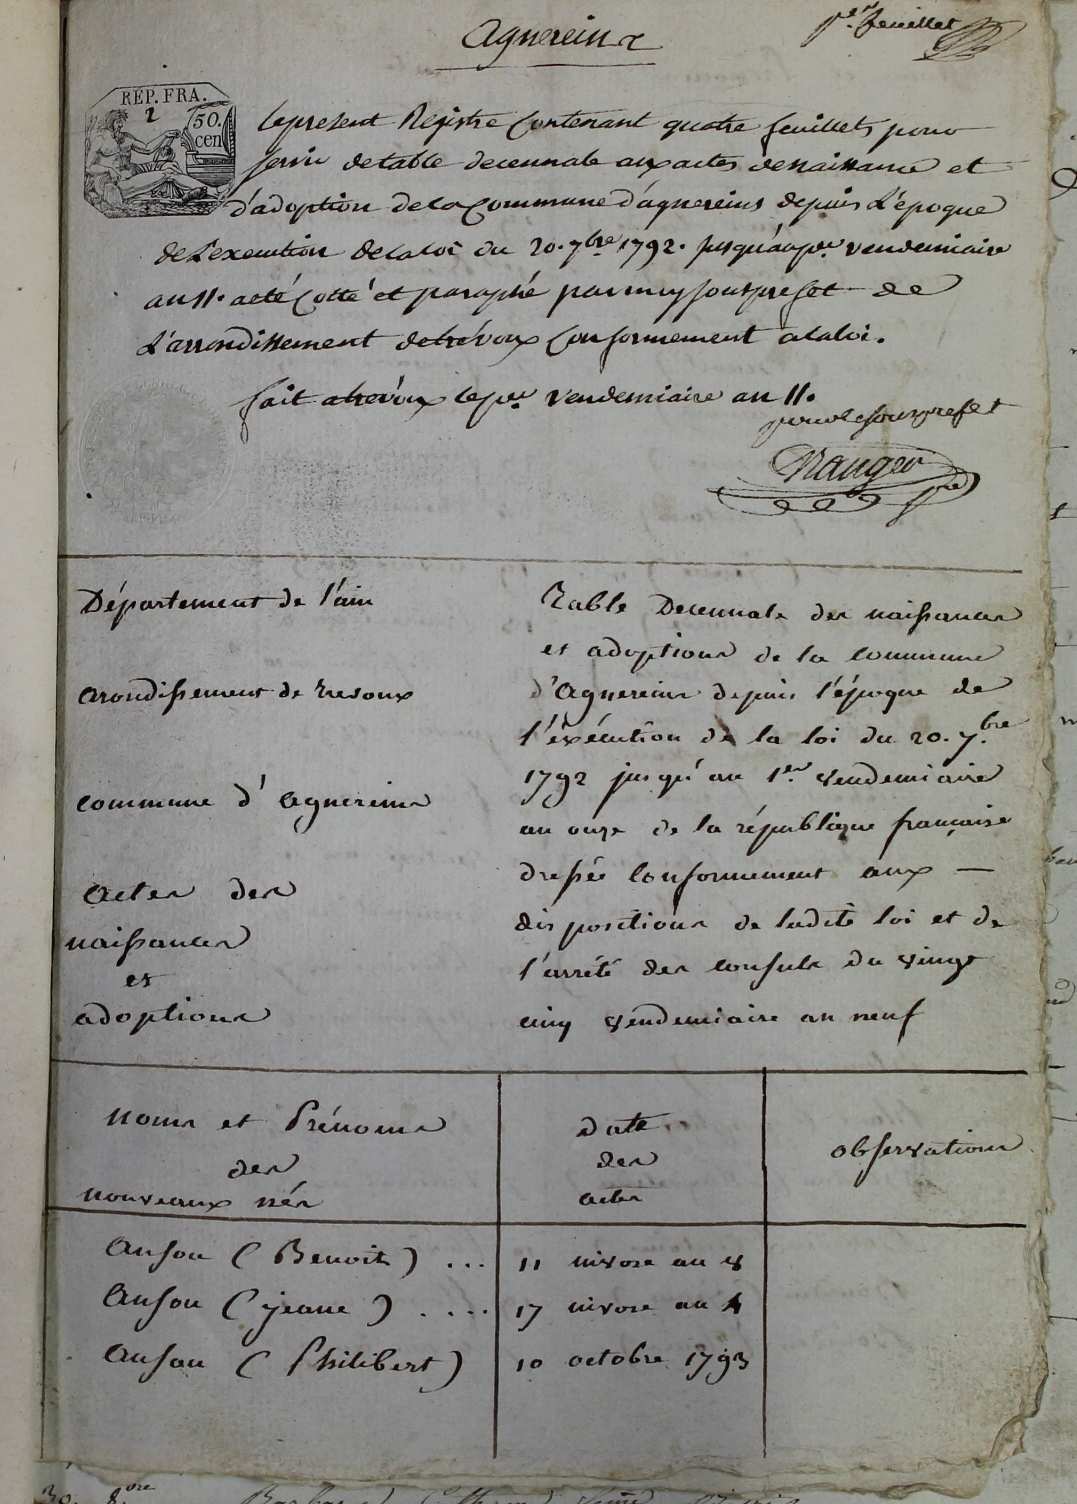 Agnereins
1er. feuillet
RÉP. FRA.
50.
cen
Le present Registre Contenant quatre feuillets pour
servir de table decennale aux actes de naissance et
d'adoption de la Commune d'agnereins depuis L'époque
de L'execution de la loi du 20. 7bre 1792. jusqu'au per. vendemiaire
an 11. a été Cotté et paraphé par moy souspréfet de
L'arrondissement de trévoux Conformement a la loi.
fait a trévoux le per. vendemiaire an 11.
pour le souspréfet
Département de l'ain
arondissement de trevoux
commune d'agnereins
actes des
naissances
et
adoptions
Table Decennale des naissances
et adoptions de la commune
d'agnereins depuis l'époque de
l'éxécution de la loi du 20. 7.bre
1792 jusqu'au 1er. vendemiaire
an onze de la république française
dressée conformement aux —
dispositions de ladite loi et de
l'arrété des consuls du vingt
cinq vendemiaire an neuf
noms et Prénoms
des
nouveaux nés
date
des
actes
observations
Anson (Benoit) ... 11 nivose an 8
Anson (jeane) .... 17 nivose an 4
Anson (Philibert) 10 octobre 1793
30. 8.bre